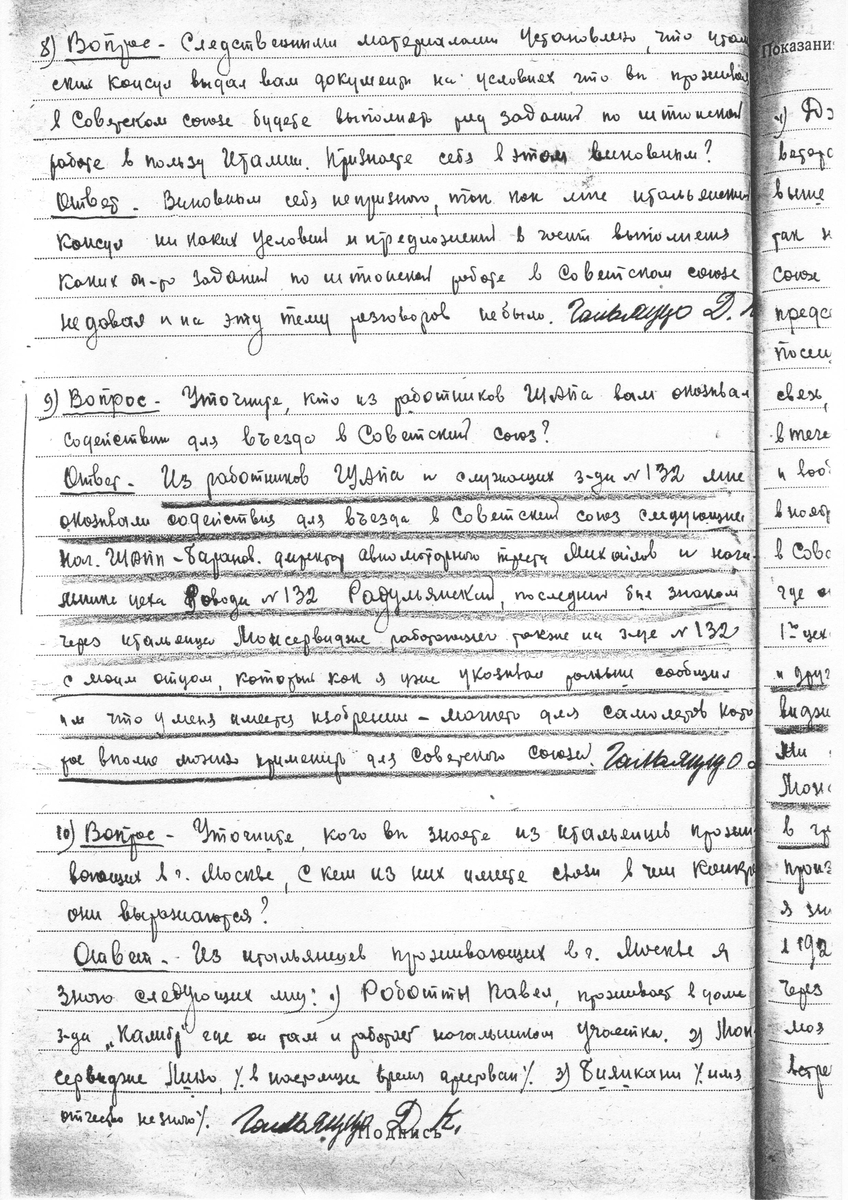 8) Вопрос - Следственными материалами установлено, что италь
ский консул выдал вам документы на условиях что вы прожива
в Советском союзе будете выполнять ряд заданий по шпионской
работе в пользу Италии. Признаете себя в этом виновным?
Ответ - Виновным себя непризнаю, так как мне итальянский
консул ни каких условий и предложений в части выполнения
каких он-то заданий по шпионской работе в Советском союзе
недавал и на эту тему разговоров небыло. Гальяццо Д. К
9) Вопрос - Уточните, кто из работников ЦАГИа вам оказывал
содействия для въезда в Советский союз?
Ответ - Из работников ЦАГИа и служащих з-да №132 мне
оказывали содействия для въезда в Советский союз следующие
Нач. ЦАГИ - Баранов. директор авиамоторного треста Михайлов и нача-
льник цеха завода №132 Радумянский, последний был знаком
через итальянца Монсервидже работающего также на з-де №132
с моим отцом, который как я уже указывал раньше сообщил
им что у меня имеется изобретение - магнето для самолетов кото
рое вполне можно применить для Советского Союза. Гальяццо
10) Вопрос - Уточните, кого вы знаете из итальянцев прожи
вающих в г. Москве, с кем из них имеете связи в чем конкр
они выражаются?
Ответ - Из итальянцев проживающих в г. Москве я
знаю следующих лиц: 1) Роботты Павел, проживает в доме
з-да „Калибр" где он там и работает начальником участка. 2) Мон
сервидже Лино, /. в настоящие время арестован /. 3) Бианкани /. имя
отчество не знаю /. Гальяццо Д. К.
Подпись
Показани
4)
выше
так н
союзе
предс
посещ
связ,
в тече
и вооб
в нояб
в Сов
где о
1ом цех
и друг
видж
Ми
Монс
в гр
произ
я зн
в 192
через
моз
встре